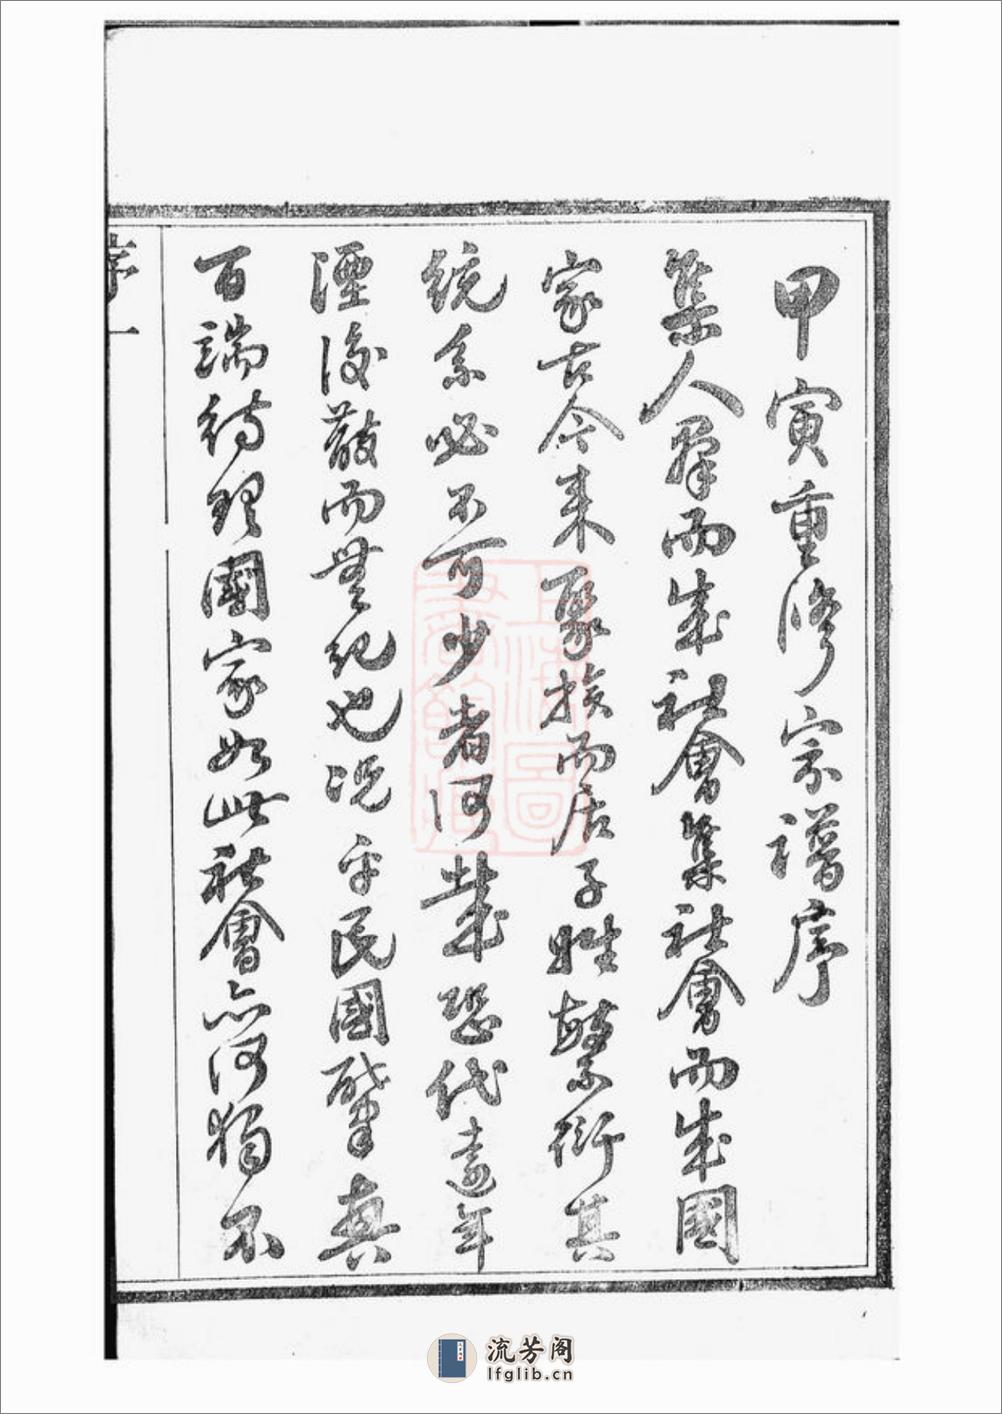 甲寅重修宗譜序
集人羣而成社會集社會而成國
家古今來聚族而居子姓繁衍其
統系必不可少者何哉恐代遠年
湮後散而無紀也况乎民國肇興
百端待理國家如此社會亦何獨不
序一
上海圖
書館藏
流芳阁
lfglib.cn